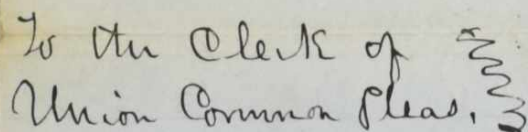 To the Clerk of
Union Common Pleas.